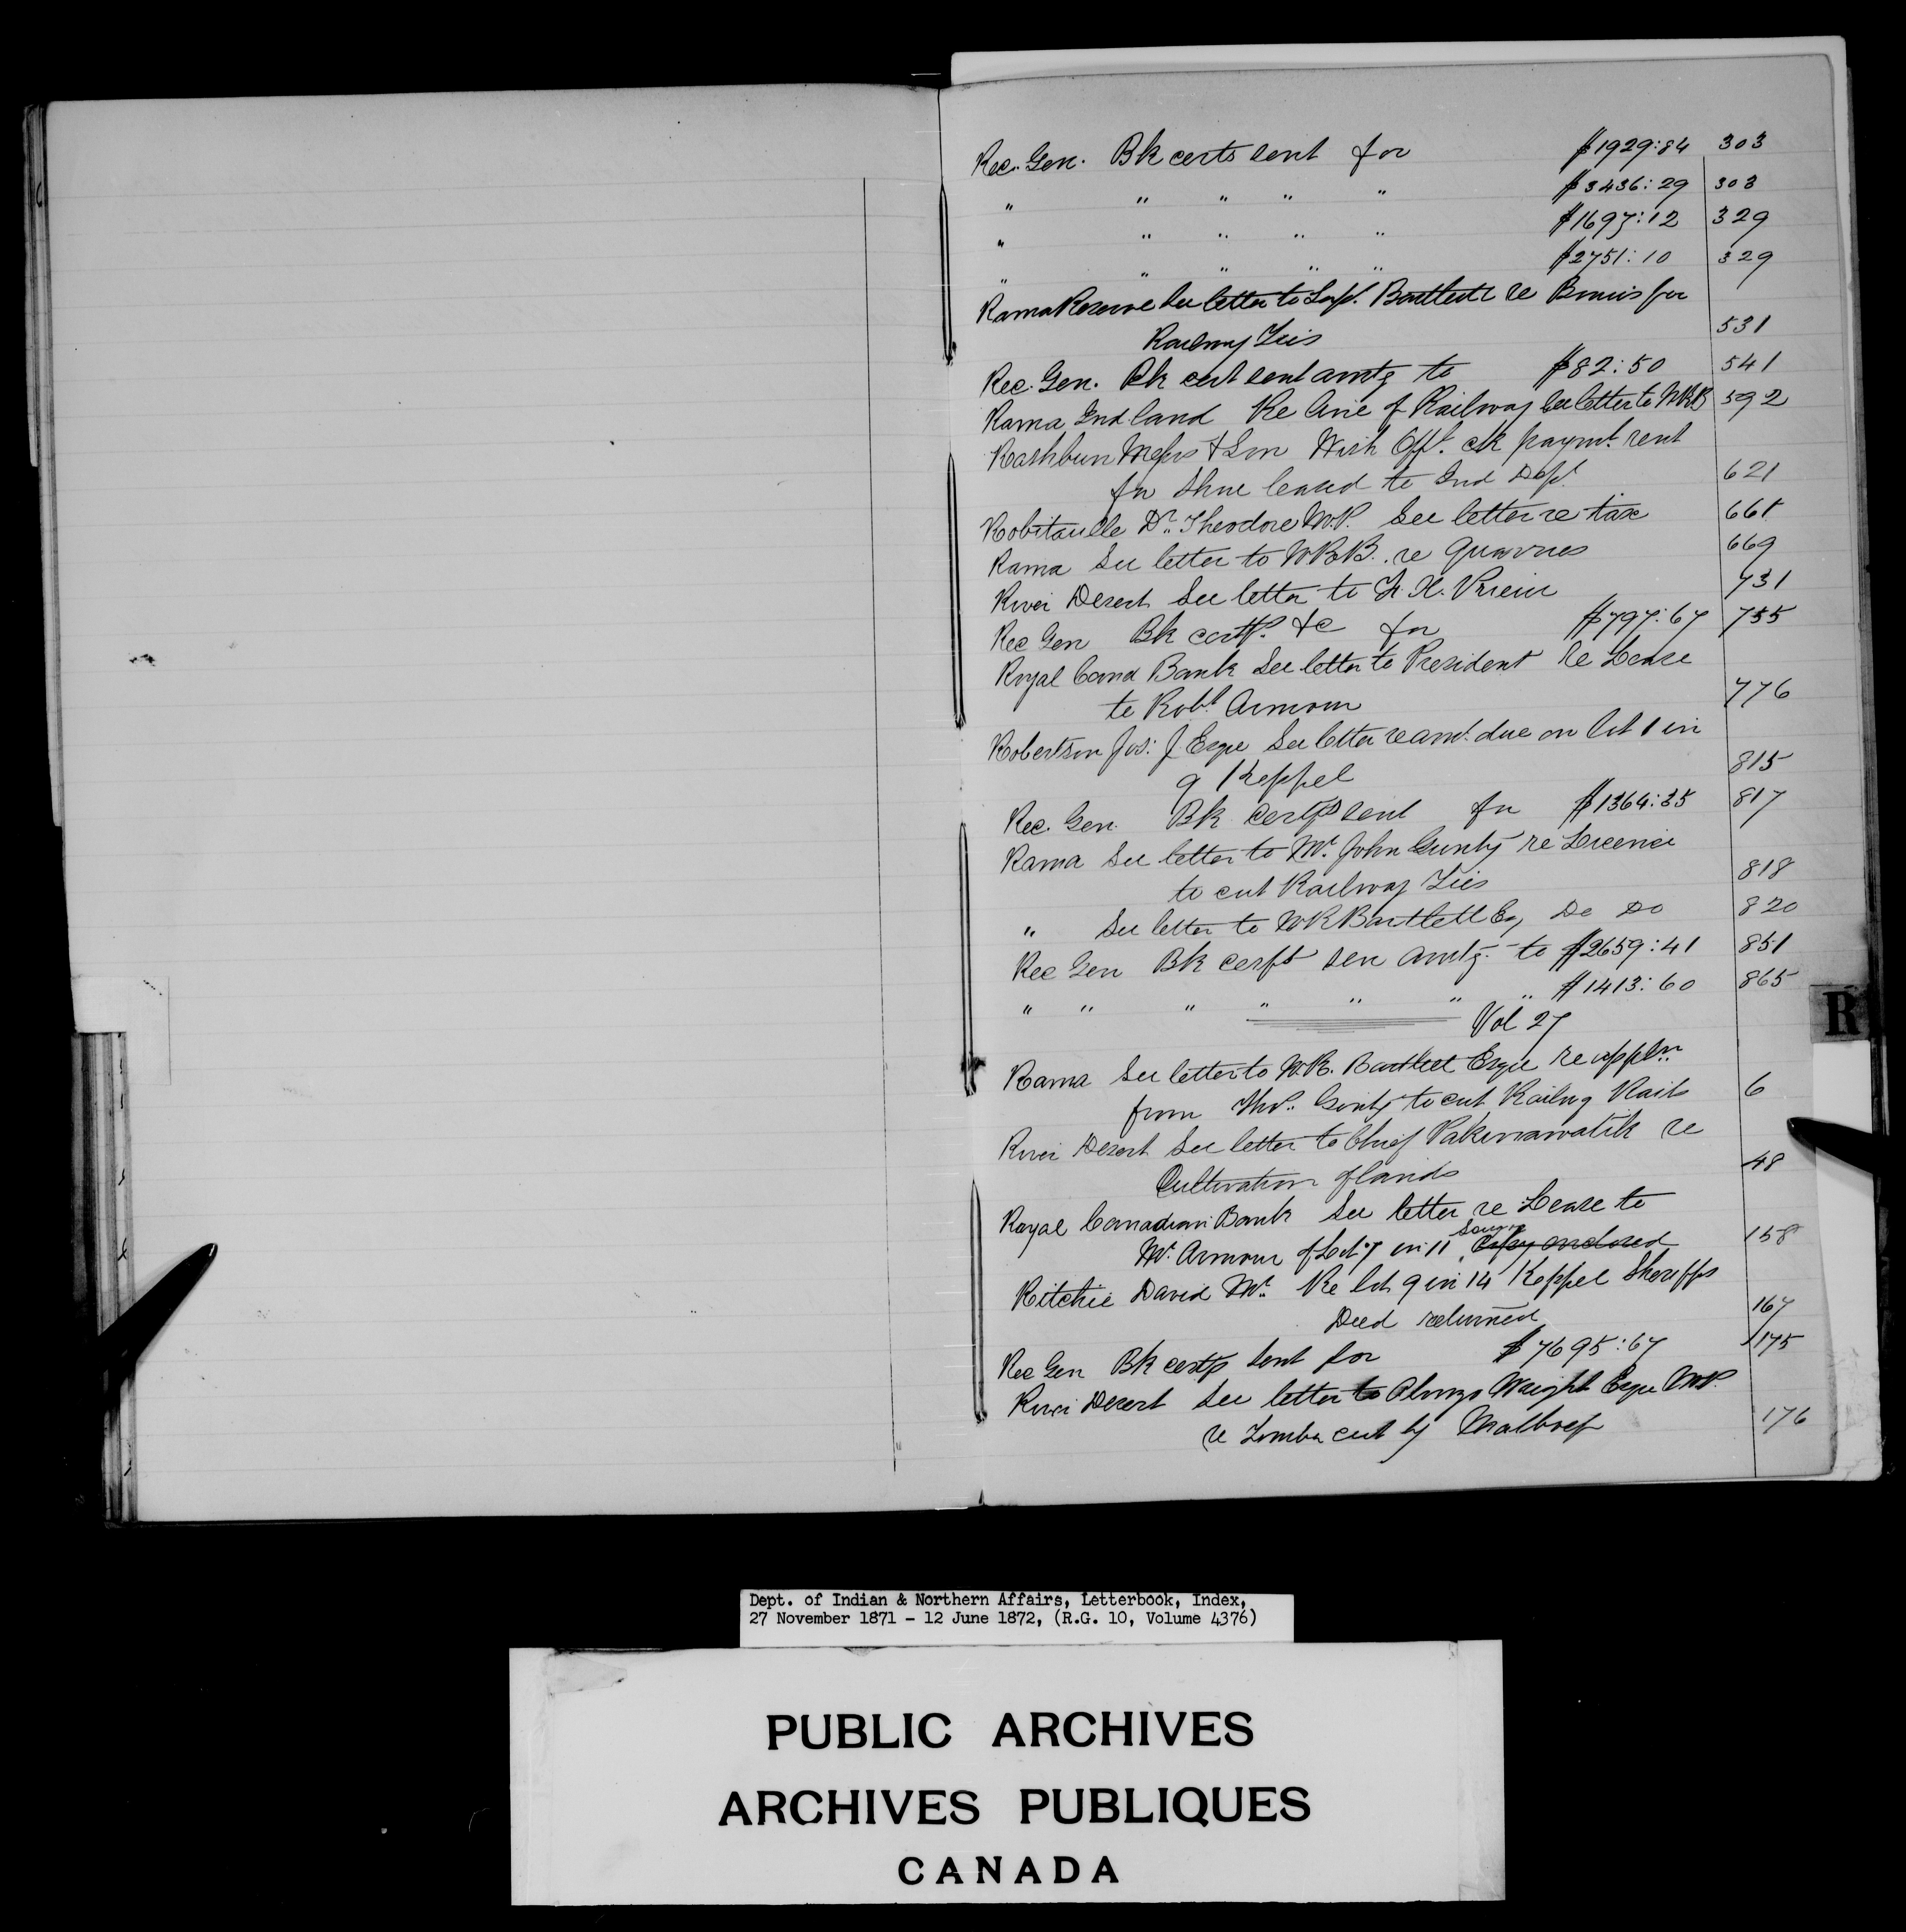 Rec. Gen. Bk certs sent for $1929:84 303
" " " " " $3436:29 303
" " " " " $1697:12 329
" " " " " $2751:10 329
Rama Reserve See letter to Supt. Bartlett re Bonus for
Railway Ties 531
Rec. Gen. Bk cert sent amtg to $82:50 541
Rama Ind land Re Line of Railway See letter to WRB 592
Rathbun Messrs & Son With Offl. ck paymt. rent
for Shore leased to Ind Dept 621
Robitaille Dr. Theodore M.P. See letter re tax 661
Rama See letter to WRB. re Quarries 669
River Desert See letter to 731
Rec Gen Bk certf. &c for $797:67 755
Royal Cana Bank See letter to President re Lease
to Robt Armour 776
Robertson Jos: J. Esqre See letter re amt. due on lot 1 in
9 Keppel 815
Rec. Gen. Bk certfs sent for $1364:35 817
Rama See letter to Mr. John Gunty re Licence
to cut Railway Ties 818
" See letter to WR Bartlett Esq Do Do 820
Rec Gen Bk certfs sen amtg. to $2659:41 851
" " " " " " " $1413:60 865
Vol 27
Rama See letter to W.R. Bartlett Esqre re appln
from Thos. to cut Railwy Rails 6
River Desert See letter to Chief Pakinawatik re
Cultivation of lands 48
Royal Canadian Bank See letter re Lease to
Mr. Armour of Lot 7 in 11 Copy enclosed 158
Ritchie David Mr. Re lot 9 in 14 Keppel Sheriffs
Deed returned 167
Rec Gen Bk certfs sent for $7695:67 175
River Desert See letter to Alonzo Wright Esqre M.P.
re Timber cut by 176
R
Dept. of Indian & Northern Affairs, Letterbook, Index,
27 November 1871 - 12 June 1872, (R.G. 10, Volume 4376)
PUBLIC ARCHIVES
ARCHIVES PUBLIQUES
CANADA